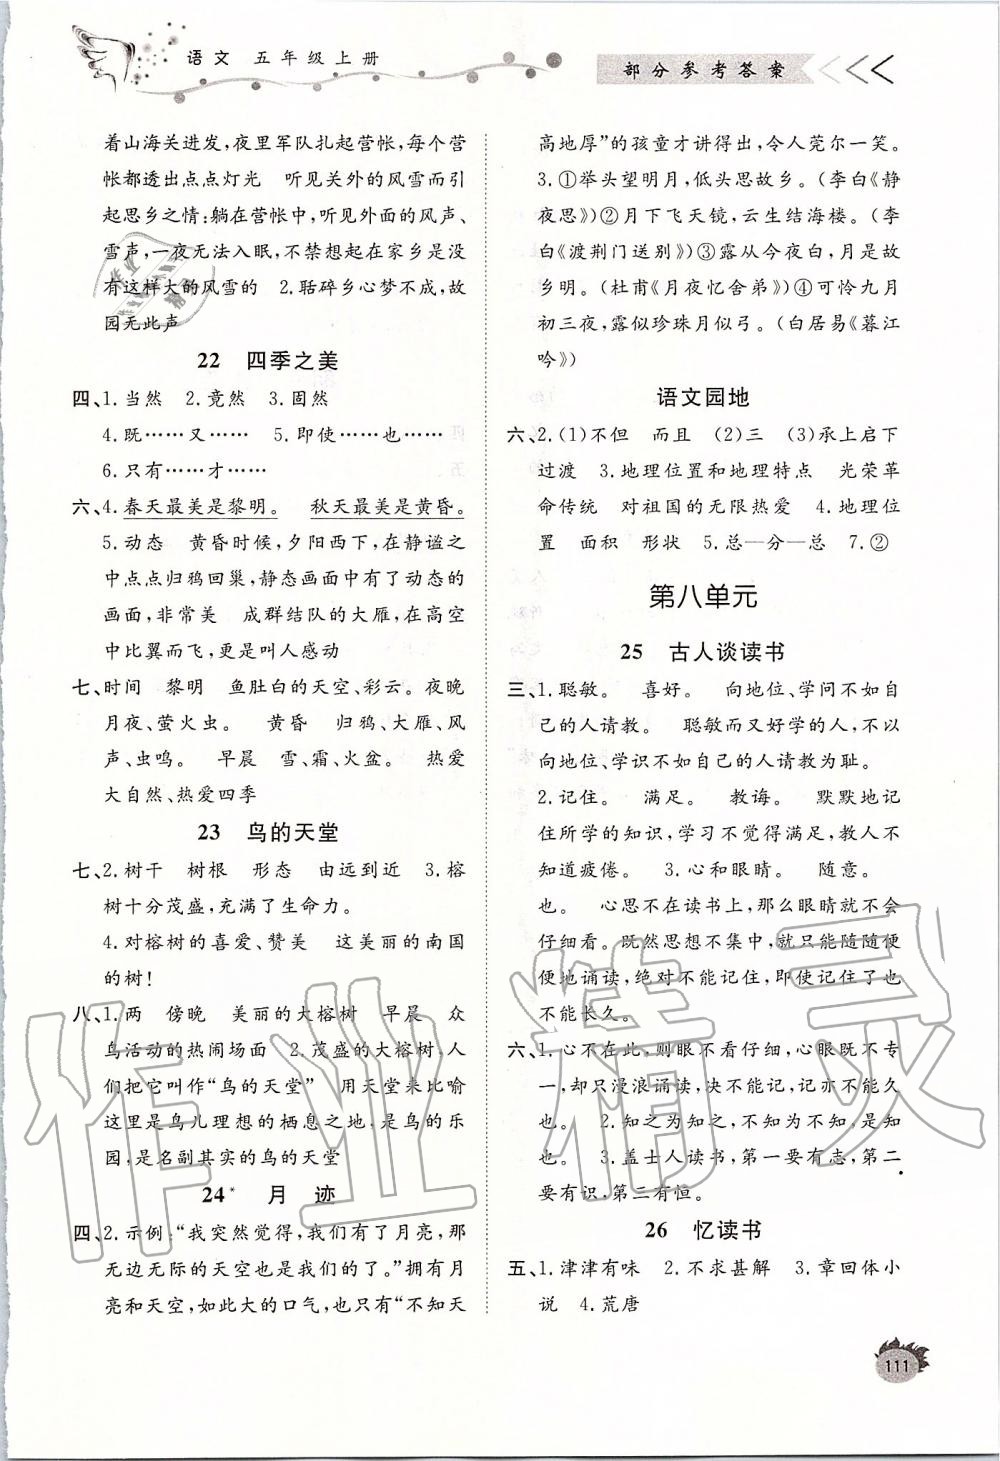 语文 五年级上册
部分参考答案
着山海关进发,夜里军队扎起营帐,每个营
帐都透出点点灯光 听见关外的风雪而引
起思乡之情:躺在营帐中,听见外面的风声、
雪声,一夜无法入眠,不禁想起在家乡是没
有这样大的风雪的 2.聒碎乡心梦不成,故
园无此声
22 四季之美
四、1.当然 2.竟然 3.固然
4.既……又…… 5.即使……也……
6.只有……才……
六、4.春天最美是黎明。 秋天最美是黄昏。
5.动态 黄昏时候,夕阳西下,在静谧之
中点点归鸦回巢,静态画面中有了动态的
画面,非常美 成群结队的大雁,在高空
中比翼而飞,更是叫人感动
七、时间 黎明 鱼肚白的天空、彩云。夜晚
月夜、萤火虫。 黄昏 归鸦、大雁、风
声、虫鸣。 早晨 雪、霜、火盆。 热爱
大自然、热爱四季
23 鸟的天堂
七、2.树干 树根 形态 由远到近 3.榕
树十分茂盛,充满了生命力。
4.对榕树的喜爱、赞美 这美丽的南国
的树!
八、1.两 傍晚 美丽的大榕树 早晨 众
鸟活动的热闹场面 2.茂盛的大榕树,人
们把它叫作“鸟的天堂” 用天堂来比喻
这里是鸟儿理想的栖息之地,是鸟的乐
园,是名副其实的鸟的天堂
24* 月迹
四、2.示例:“我突然觉得,我们有了月亮,那
无边无际的天空也是我们的了。”拥有月
亮和天空,如此大的口气,也只有“不知天
高地厚”的孩童才讲得出,令人莞尔一笑。
3.①举头望明月,低头思故乡。(李白《静
夜思》)②月下飞天镜,云生结海楼。(李
白《渡荆门送别》)③露从今夜白,月是故
乡明。(杜甫《月夜忆舍弟》)④可怜九月
初三夜,露似珍珠月似弓。(白居易《暮江
吟》)
语文园地
六、2.(1)不但 而且 (2)三 (3)承上启下
过渡 3.地理位置和地理特点 光荣革
命传统 对祖国的无限热爱 4.地理位
置 面积 形状 5.总—分—总 7.②
第八单元
25 古人谈读书
三、1.聪敏。 喜好。 向地位、学问不如自
己的人请教。 聪敏而又好学的人,不以
向地位、学识不如自己的人请教为耻。
2.记住。 满足。 教诲。 默默地记
住所学的知识,学习不觉得满足,教人不
知道疲倦。 3.心和眼睛。 随意。
也。 心思不在读书上,那么眼睛就不会
仔细看。既然思想不集中,就只能随随便
便地诵读,绝对不能记住,即使记住了也
不能长久。
六、1.心不在此,则眼不看仔细,心眼既不专
一,却只漫浪诵读,决不能记,记亦不能久
也。 2.知之为知之,不知为不知,是知
也。 3.盖士人读书,第一要有志,第二
要有识,第三有恒。
26 忆读书
五、1.津津有味 2.不求甚解 3.章回体小
说 4.荒唐
111
作业精灵